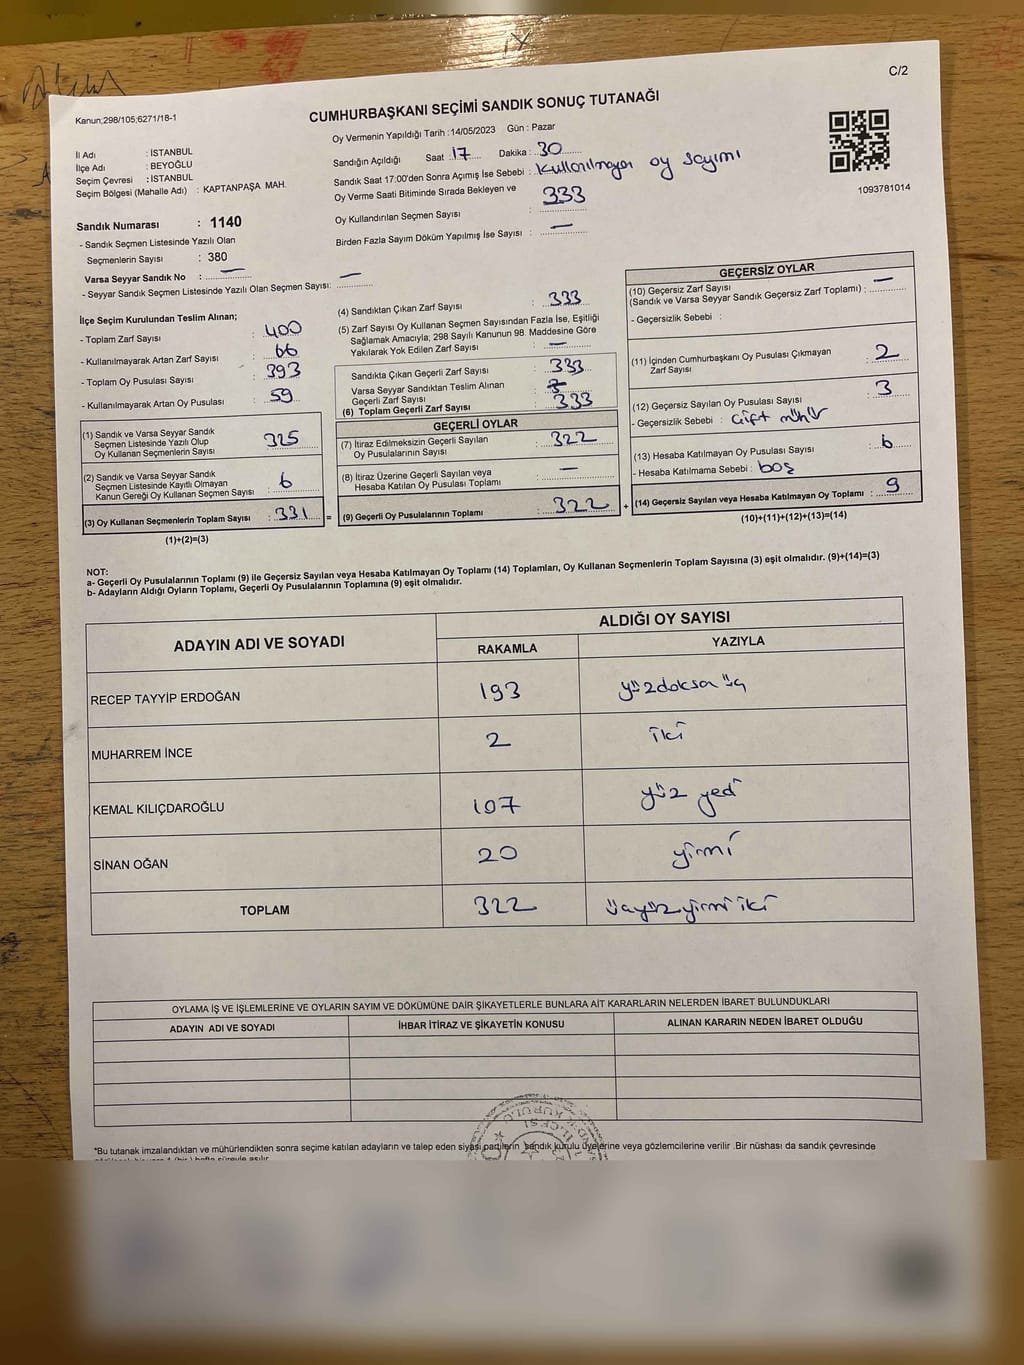 C/2
Kanun;298/105;6271/18-1
CUMHURBAŞKANI SEÇİMİ SANDIK SONUÇ TUTANAĞI
Oy Vermenin Yapıldığı Tarih :14/05/2023 Gün : Pazar
İl Adı : İSTANBUL
İlçe Adı : BEYOĞLU
Seçim Çevresi : İSTANBUL
Seçim Bölgesi (Mahalle Adı) : KAPTANPAŞA MAH.
Sandığın Açıldığı Saat : 17 Dakika : 30
Sandık Saat 17:00'den Sonra Açımış İse Sebebi : Kullanılmayan oy sayımı
Oy Verme Saati Bitiminde Sırada Bekleyen ve
Oy Kullandırılan Seçmen Sayısı : 333
Birden Fazla Sayım Döküm Yapılmış İse Sayısı : —
1093781014
Sandık Numarası : 1140
- Sandık Seçmen Listesinde Yazılı Olan
Seçmenlerin Sayısı : 380
Varsa Seyyar Sandık No : —
- Seyyar Sandık Seçmen Listesinde Yazılı Olan Seçmen Sayısı: —
İlçe Seçim Kurulundan Teslim Alınan;
- Toplam Zarf Sayısı : 400
- Kullanılmayarak Artan Zarf Sayısı : 66
- Toplam Oy Pusulası Sayısı : 393
- Kullanılmayarak Artan Oy Pusulası : 59
(1) Sandık ve Varsa Seyyar Sandık
Seçmen Listesinde Yazılı Olup
Oy Kullanan Seçmenlerin Sayısı : 325
(2) Sandık ve Varsa Seyyar Sandık
Seçmen Listesinde Kayıtlı Olmayan
Kanun Gereği Oy Kullanan Seçmen Sayısı : 6
(3) Oy Kullanan Seçmenlerin Toplam Sayısı : 331 =
(1)+(2)=(3)
(4) Sandıktan Çıkan Zarf Sayısı : 333
(5) Zarf Sayısı Oy Kullanan Seçmen Sayısından Fazla İse, Eşitliği
Sağlamak Amacıyla; 298 Sayılı Kanunun 98. Maddesine Göre
Yakılarak Yok Edilen Zarf Sayısı : —
Sandıkta Çıkan Geçerli Zarf Sayısı : 333
Varsa Seyyar Sandıktan Teslim Alınan
Geçerli Zarf Sayısı :
(6) Toplam Geçerli Zarf Sayısı : 333
GEÇERLİ OYLAR
(7) İtiraz Edilmeksizin Geçerli Sayılan
Oy Pusulalarının Sayısı : 322
(8) İtiraz Üzerine Geçerli Sayılan veya
Hesaba Katılan Oy Pusulası Toplamı : —
(9) Geçerli Oy Pusulalarının Toplamı : 322 +
GEÇERSİZ OYLAR
(10) Geçersiz Zarf Sayısı
(Sandık ve Varsa Seyyar Sandık Geçersiz Zarf Toplamı) : —
- Geçersizlik Sebebi :
(11) İçinden Cumhurbaşkanı Oy Pusulası Çıkmayan
Zarf Sayısı : 2
(12) Geçersiz Sayılan Oy Pusulası Sayısı : 3
- Geçersizlik Sebebi : Çift mühür
(13) Hesaba Katılmayan Oy Pusulası Sayısı : 6
- Hesaba Katılmama Sebebi : boş
(14) Geçersiz Sayılan veya Hesaba Katılmayan Oy Toplamı : 9
(10)+(11)+(12)+(13)=(14)
NOT:
a- Geçerli Oy Pusulalarının Toplamı (9) ile Geçersiz Sayılan veya Hesaba Katılmayan Oy Toplamı (14) Toplamları, Oy Kullanan Seçmenlerin Toplam Sayısına (3) eşit olmalıdır. (9)+(14)=(3)
b- Adayların Aldığı Oyların Toplamı, Geçerli Oy Pusulalarının Toplamına (9) eşit olmalıdır.
ADAYIN ADI VE SOYADI ALDIĞI OY SAYISI
RAKAMLA YAZIYLA
RECEP TAYYİP ERDOĞAN 193 yüzdoksa üç
MUHARREM İNCE 2 iki
KEMAL KILIÇDAROĞLU 107 yüz yedi
SİNAN OĞAN 20 yirmi
TOPLAM 322 üçyüz yirmi iki
OYLAMA İŞ VE İŞLEMLERİNE VE OYLARIN SAYIM VE DÖKÜMÜNE DAİR ŞİKAYETLERLE BUNLARA AİT KARARLARIN NELERDEN İBARET BULUNDUKLARI
ADAYIN ADI VE SOYADI İHBAR İTİRAZ VE ŞİKAYETİN KONUSU ALINAN KARARIN NEDEN İBARET OLDUĞU
*Bu tutanak imzalandıktan ve mühürlendikten sonra seçime katılan adayların ve talep eden siyasi partilerin sandık kurulu üyelerine veya gözlemcilerine verilir .Bir nüshası da sandık çevresinde